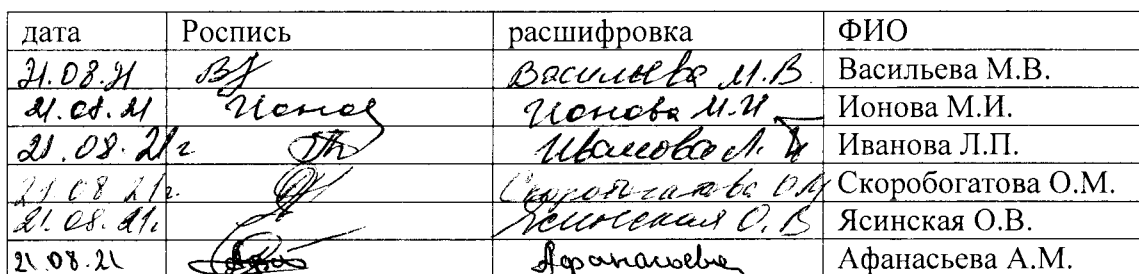 дата Роспись расшифровка ФИО
21.08.21 Васильева М.В. Васильева М.В.
21.08.21 Ионова Ионова М.И Ионова М.И.
21.08.21г Иванова Л. Иванова Л.П.
21.08.21г. Скоробогатова О.М Скоробогатова О.М.
21.08.21г. Ясинская О.В Ясинская О.В.
21.08.21 Афанасьева Афанасьева А.М.